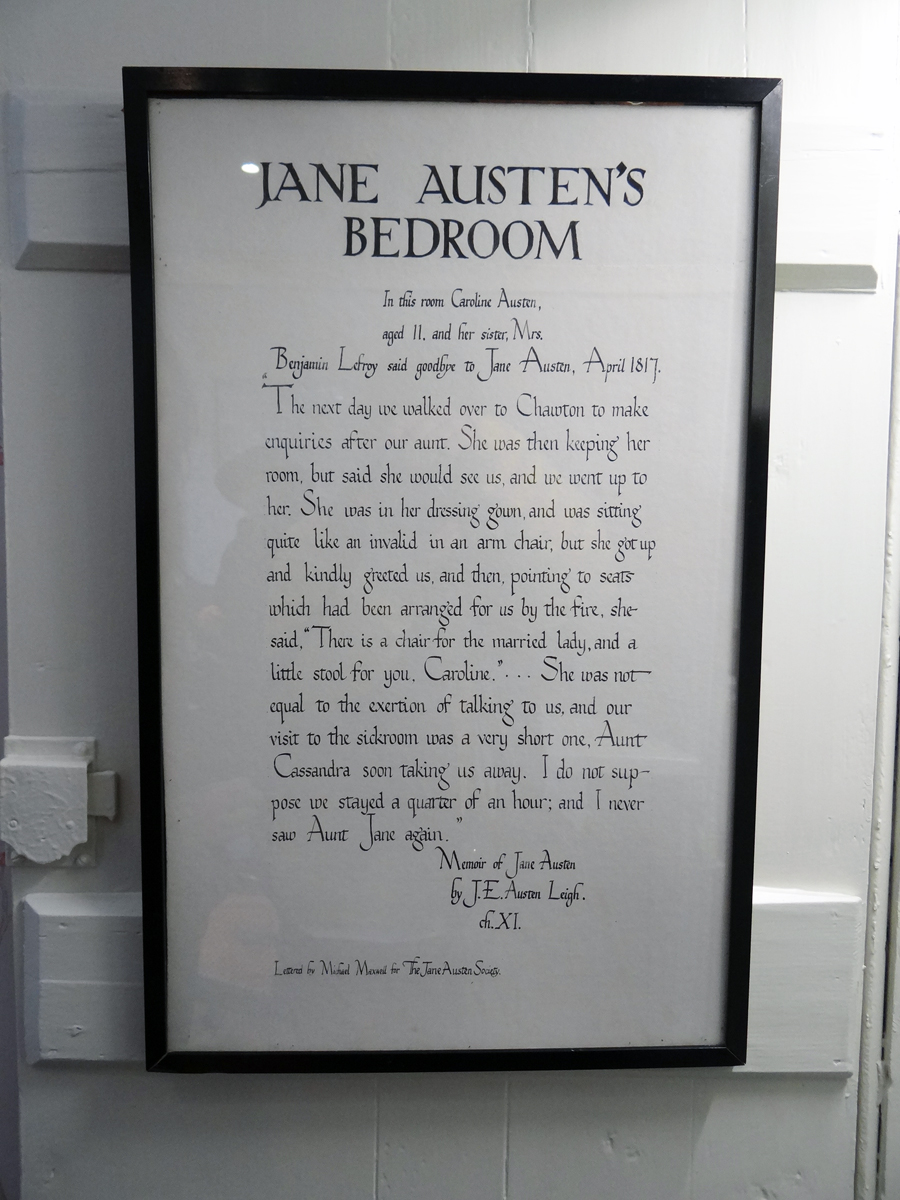 JANE AUSTEN'S
BEDROOM
In this room Caroline Austen,
aged 11, and her sister, Mrs.
Benjamin Lefroy said goodbye to Jane Austen, April 1817.
"The next day we walked over to Chawton to make
enquiries after our aunt. She was then keeping her
room, but said she would see us, and we went up to
her. She was in her dressing gown, and was sitting
quite like an invalid in an arm chair, but she got up
and kindly greeted us, and then, pointing to seats
which had been arranged for us by the fire, she
said, "There is a chair for the married lady, and a
little stool for you, Caroline." . . . She was not
equal to the exertion of talking to us, and our
visit to the sickroom was a very short one, Aunt
Cassandra soon taking us away. I do not sup-
pose we stayed a quarter of an hour; and I never
saw Aunt Jane again."
Memoir of Jane Austen
by J.E. Austen Leigh.
ch. XI.
Lettered by Michael Maxwell for The Jane Austen Society.